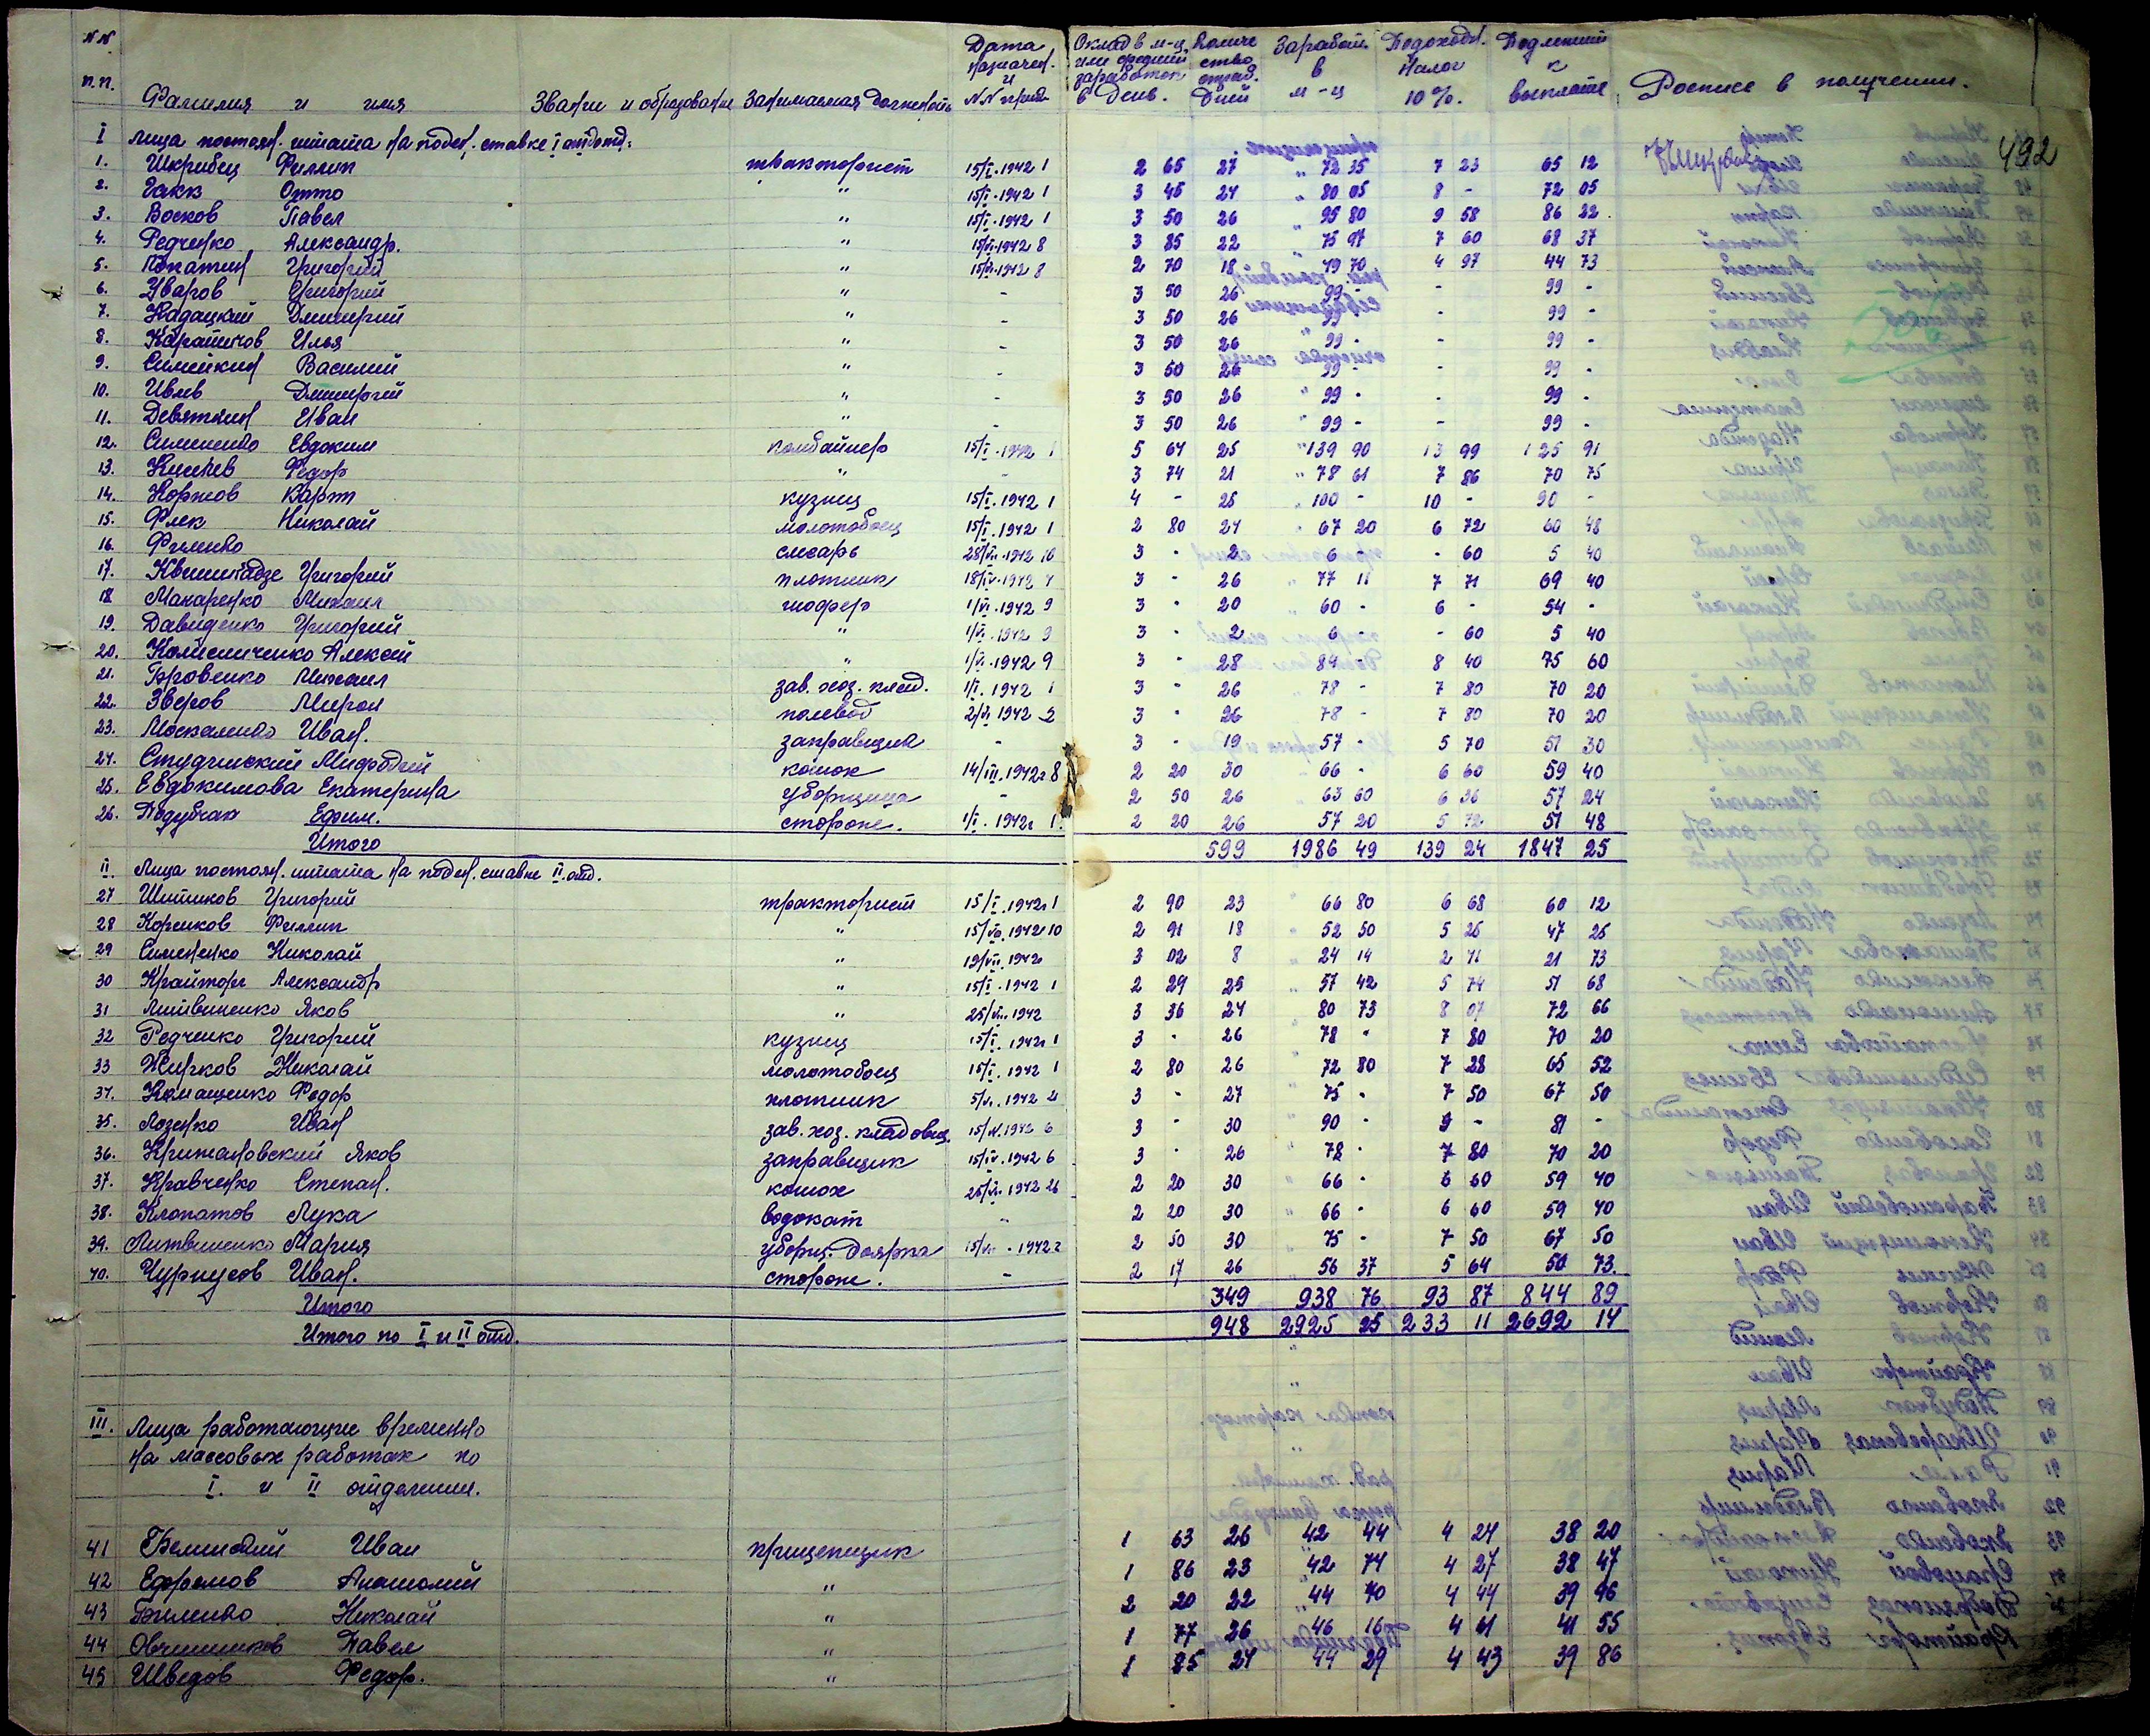 NN п.п. Фамилия и имя Звание и образование Занимаемая должность Дата назначен. и NN приказ Оклад в м-ц или средний заработок в день. Количество отраб. дней Заработ. в м-ц Подоходн. налог 10%. Подлежит к выплате Роспись в получении.
492
I лица постоян. штата на поден. ставке I отд.
1. Шкрибец Филлип тракторист 15/I.1942 1 2 65 27 72 35 7 23 65 12
2. Гакк Отто " 15/I.1942 1 3 45 24 80 05 8 - 72 05
3. Восков Павел " 15/I.1942 1 3 50 26 95 80 9 58 86 22
4. Редченко Александр. " 15/VI.1942 8 3 85 22 75 97 7 60 68 37
5. Лопатин Григорий " 15/VI.1942 8 2 70 18 49 70 4 97 44 73
6. Уваров Григорий " - 3 50 26 99 - - 99 -
7. Надацкий Дмитрий " - 3 50 26 99 - - 99 -
8. Карайчов Илья " - 3 50 26 99 - - 99 -
9. Симейкин Василий " - 3 50 26 99 - - 99 -
10. Ивлев Дмитрий " - 3 50 26 99 - - 99 -
11. Девяткин Иван " - 3 50 26 99 - - 99 -
12. Симоненко Евдоким комбайнер 15/I.1942 1 5 64 25 139 90 13 99 125 91
13. Киселев Федор " - 3 74 21 78 61 7 86 70 75
14. Коржов Карп кузнец 15/I.1942 1 4 - 25 100 - 10 - 90 -
15. Флек Николай молотобоец 15/I.1942 1 2 80 24 67 20 6 72 60 48
16. Фименко слесарь 28/VII.1942 16 3 - 2 6 - - 60 5 40
17. Квинтадзе Григорий плотник 18/IV.1942 4 3 - 26 77 11 7 71 69 40
18 Макаренко Михаил шофер 1/VI.1942 9 3 - 20 60 - 6 - 54 -
19. Давиденко Григорий " 1/VI.1942 9 3 - 2 6 - - 60 5 40
20. Колисниченко Алексей " 1/VI.1942 9 3 - 28 84 - 8 40 75 60
21. Бровенко Михаил зав. хоз. клад. 1/I.1942 1 3 - 26 78 - 7 80 70 20
22. Зверов Мирон полевод 2/VI 1942 2 3 - 26 78 - 7 80 70 20
23. Москаленко Иван. заправщик - 3 - 19 57 - 5 70 51 30
24. Студинский Мифодий конюх 14/III.1942г 8 2 20 30 66 - 6 60 59 40
25. Евдокимова Екатерина уборщица - 2 50 26 63 60 6 36 57 24
26. Подубчак Ефим. сторож. 1/I.1942г 1. 2 20 26 57 20 5 72 51 48
Итого 599 1986 49 139 24 1847 25
II. Лица постоян. штата на поден. ставке II. отд.
27 Шишков Григорий тракторист 15/I.1942г 1 2 90 23 66 80 6 68 60 12
28 Корсиков Филлип " 15/VII.1942 10 2 91 18 52 50 5 25 47 25
29 Симоненко Николай " 19/VII.1942 3 02 8 24 14 2 41 21 73
30 Крайторг Александр " 15/I.1942 1 2 29 25 57 42 5 74 51 68
31 Литвиненко Яков " 25/VII.1942 3 36 24 80 73 8 07 72 66
32 Редченко Григорий кузнец 15/I.1942г 1 3 - 26 78 - 7 80 70 20
33 Жирков Николай молотобоец 15/I.1942 1 2 80 26 72 80 7 28 65 52
34. Комащенко Федор плотник 5/VI.1942 21 3 - 27 75 - 7 50 67 50
35. Лозенко Иван зав. хоз. кладовщ. 15/IV.1942 6 3 - 30 90 - 9 - 81 -
36. Крижановский Яков заправщик 15/IV.1942 6 3 - 26 78 - 7 80 70 20
37. Кравченко Степан. конюх 25/VII.1942 26 2 20 30 66 - 6 60 59 40
38. Клопатов Лука водокат " 2 20 30 66 - 6 60 59 40
39. Литвиненко Мария уборщ. доярка 15/VII.1942 2 2 50 30 75 - 7 50 67 50
40. Чурпусов Иван. сторож. - 2 17 26 56 37 5 64 50 73.
Итого 349 938 76 93 87 844 89
Итого по I и II отд. 948 2925 25 233 11 2692 14
III. Лица работающие временно
на массовых работах по
I. и II отделении.
41 Белинский Иван прицепщик 1 63 26 42 44 4 24 38 20
42 Ефремов Анатолий " 1 86 23 42 74 4 27 38 47
43 Биленко Николай " 2 20 22 44 40 4 44 39 96
44 Овчинников Павел " 1 77 26 46 16 4 61 41 55
45 Шведов Федор. " 1 85 24 44 29 4 43 39 86